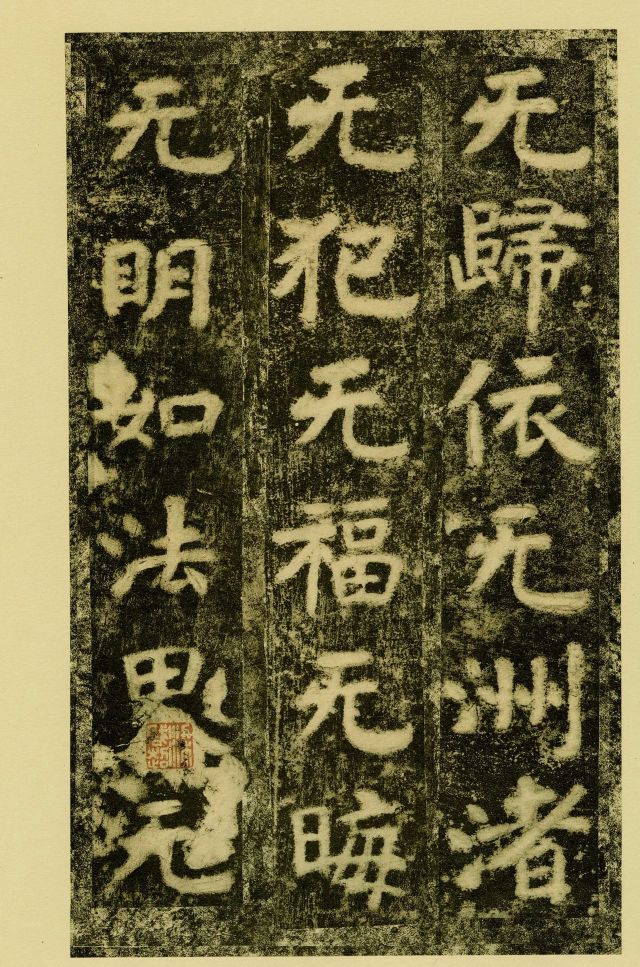 无歸依无洲渚
无犯无福无晦
无明如法界无